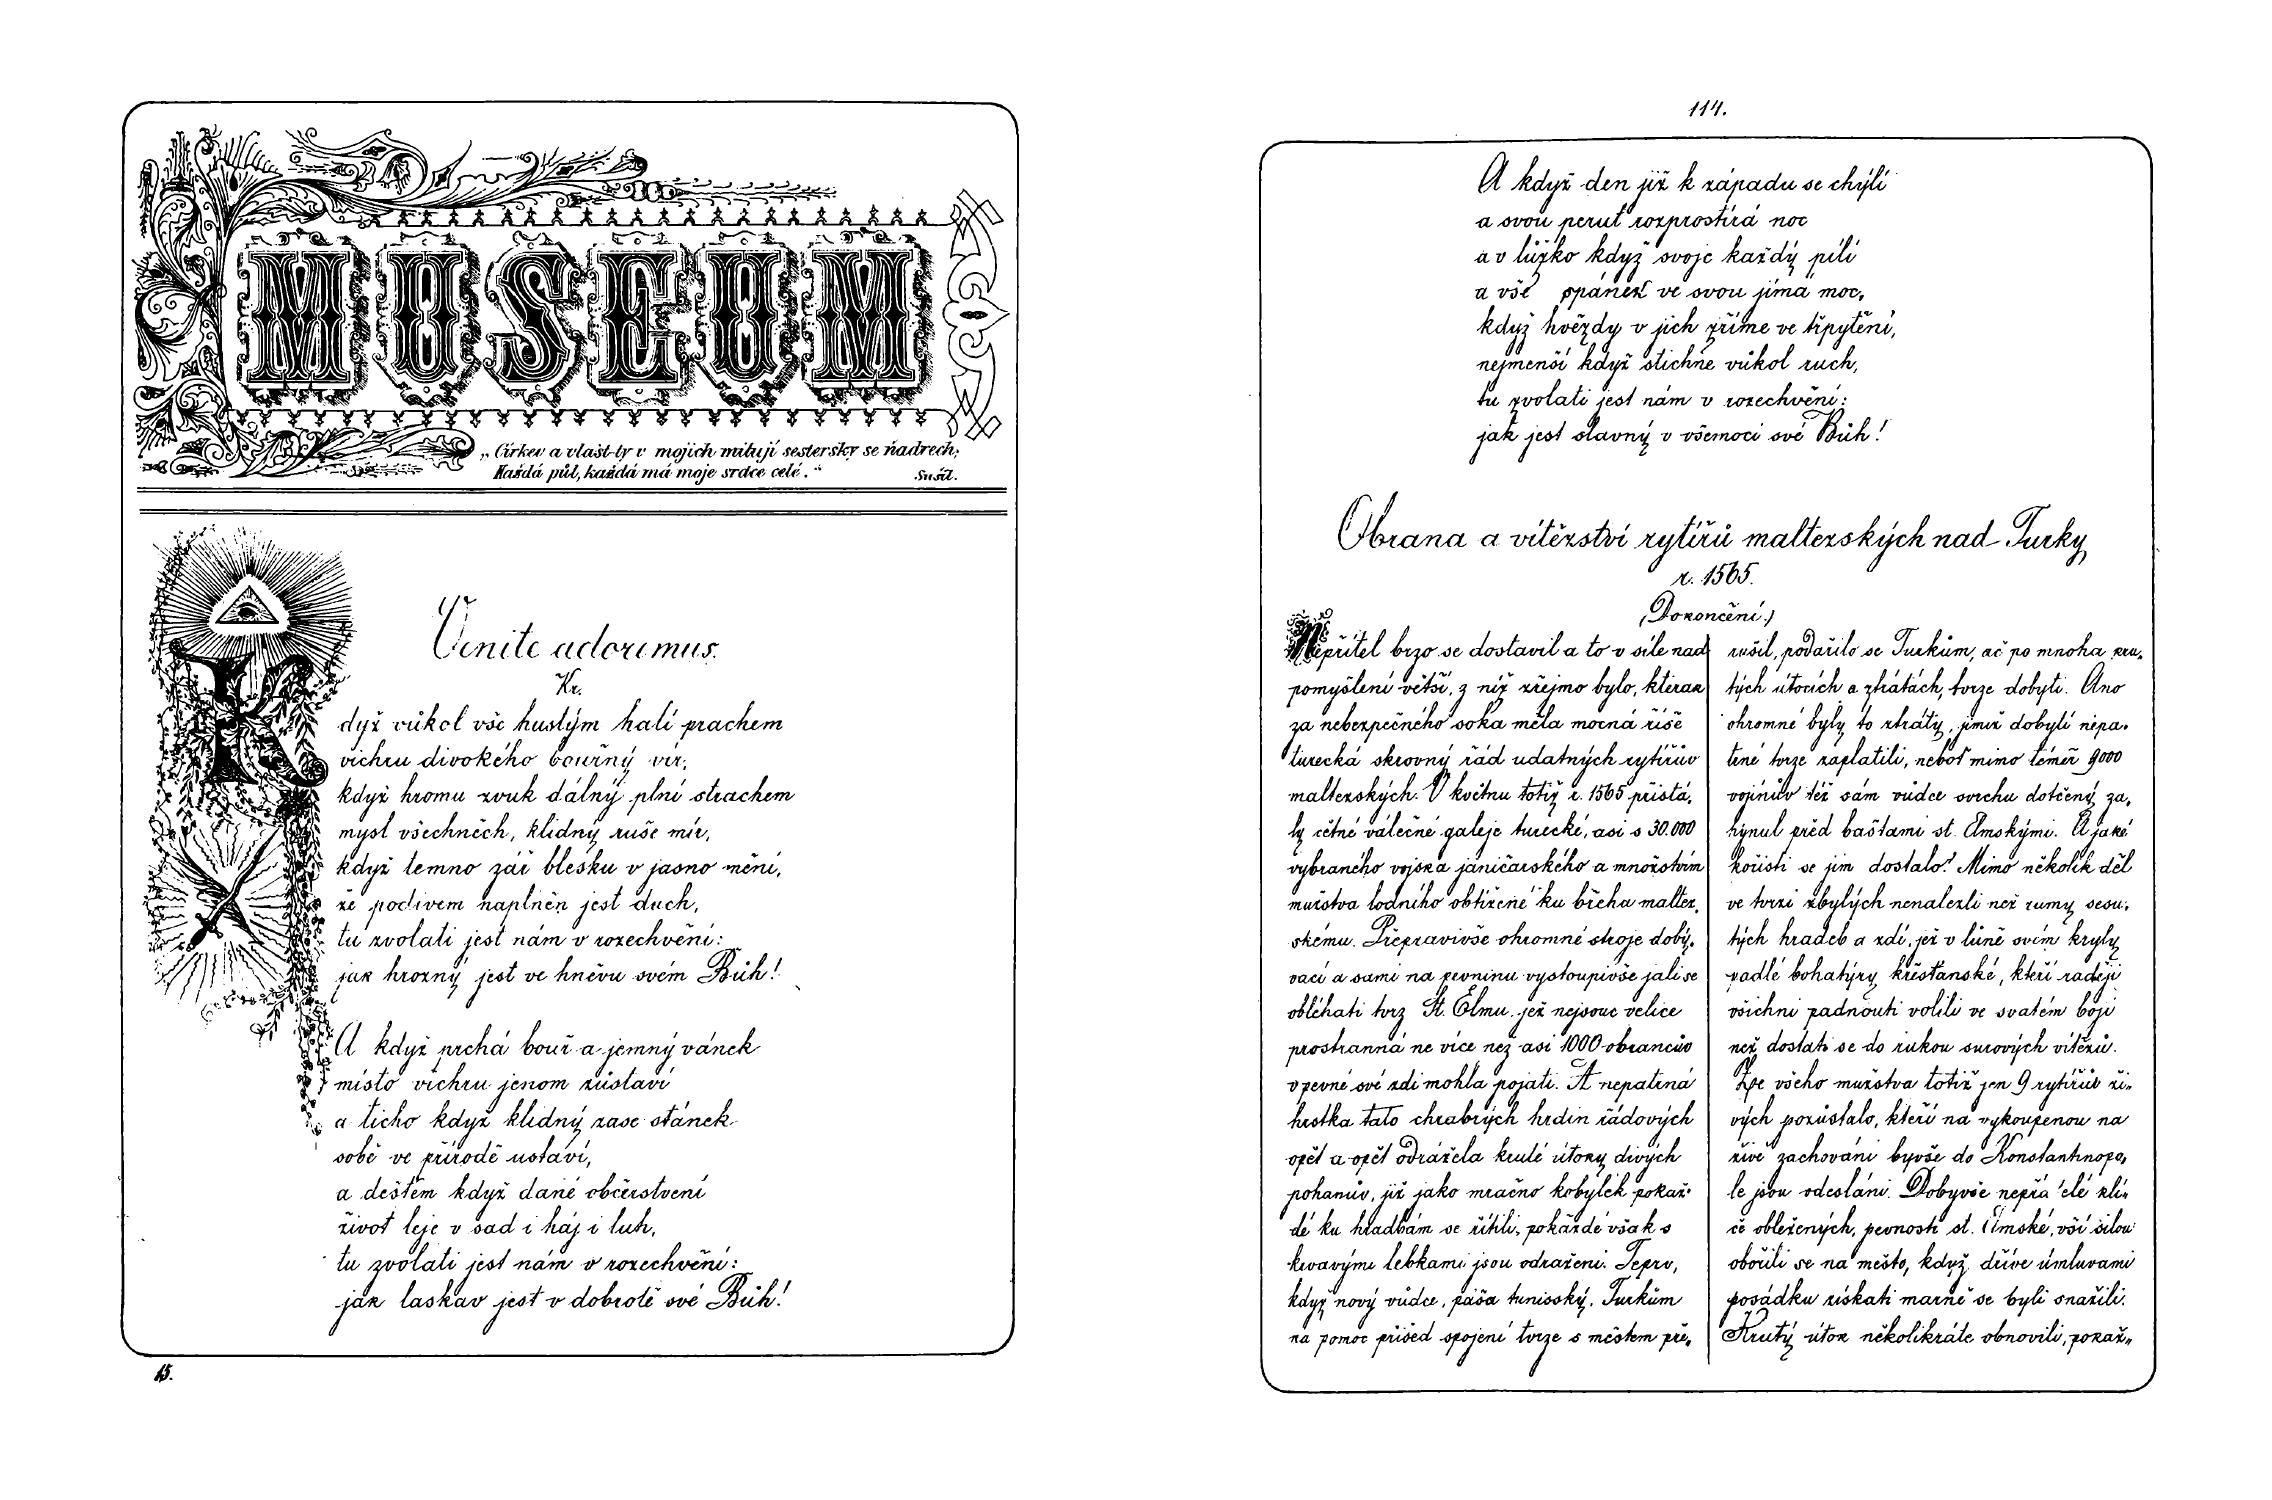 MUSEUM
„Církev a vlast-ty v mojich milují sestersky se ňadrech;
Každá půl, každá má moje srdce celé.“
Sušil.
Venite adoremus.
Kr.
Když vůkol vše hustým halí prachem
vichru divokého bouřný vír,
když hromu zvuk dálný plní strachem
mysl všechněch, klidný ruše mír,
když temno zář blesku v jasno mění,
že podivem naplněn jest duch,
tu zvolati jest nám v rozechvění:
jak hrozný jest ve hněvu svém Bůh!
A když prchá bouř a jemný vánek
místo vichru jenom zůstaví
a ticho když klidný zase stánek
sobě ve přírodě ustaví,
a deštěm když dané občerstvení
život leje v sad i háj i luh,
tu zvolati jest nám v rozechvění:
jak laskav jest v dobrotě své Bůh!
15.
114.
A když den již k západu se chýlí
a svou peruť rozprostírá noc
a v lůžko když svoje každý pílí
a vše spánek ve svou jímá moc,
když hvězdy v jich zříme ve třpytění,
nejmenší když stichne vůkol ruch,
tu zvolati jest nám v rozechvění:
jak jest slavný v všemoci své Bůh!
Obrana a vítězství rytířů maltezských nad Turky
r. 1565.
(Dokončení.)
Nepřítel brzo se dostavil a to v síle nad
pomyšlení větší, z níž zřejmo bylo, kterak
za nebezpečného soka měla mocná říše
turecká skrovný řád udatných rytířův
maltezských. V květnu totiž r. 1565 přistá-
ly četné válečné galeje turecké, asi s 30.000
vybraného vojska janičarského a množstvím
mužstva lodního obtížené ku břehu maltez-
skému. Přepravivše ohromné stroje dobý-
vací a sami na pevninu vystoupivše jali se
obléhati tvrz St. Elmu, jež nejsouc velice
prostranná ne více než asi 1000 obrancův
v pevné své zdi mohla pojati. A nepatrná
hrstka tato chrabrých hrdin řádových
opět a opět odrážela kruté útoky divých
pohanův, již jako mračno kobylek pokaž-
dé ku hradbám se řítili, pokaždé však s
krvavými lebkami jsou odraženi. Teprv,
když nový vůdce, paša tunisský, Turkům
na pomoc přišed spojení tvrze s městem pře-
rušil, podařilo se Turkům, ač po mnoha kru-
tých útocích a ztrátách, tvrze dobyti. Ano
ohromné byly to ztráty, jimiž dobytí nepa-
trné tvrze zaplatili, neboť mimo téměř 9000
vojínův též sám vůdce svrchu dotčený za-
hynul před baštami st. Elmskými. A jaké
kořisti se jim dostalo? Mimo několik děl
ve tvrzi zbylých nenalezli než rumy sesu-
tých hradeb a zdí, jež v lůně svém kryly
padlé bohatýry křesťanské, kteří raději
všichni padnouti volili ve svatém boji
než dostati se do rukou surových vítězů.
Ze všeho mužstva totiž jen 9 rytířův ži-
vých pozůstalo, kteří na vykoupenou na
živě zachováni byvše do Konstantinopo-
le jsou odesláni. Dobyvše nepřátelé klí-
če obležených, pevnosti st. Elmské, vší silou
obořili se na město, když dříve úmluvami
posádku získati marně se byli snažili.
Krutý útok několikráte obnovili, pokaž-